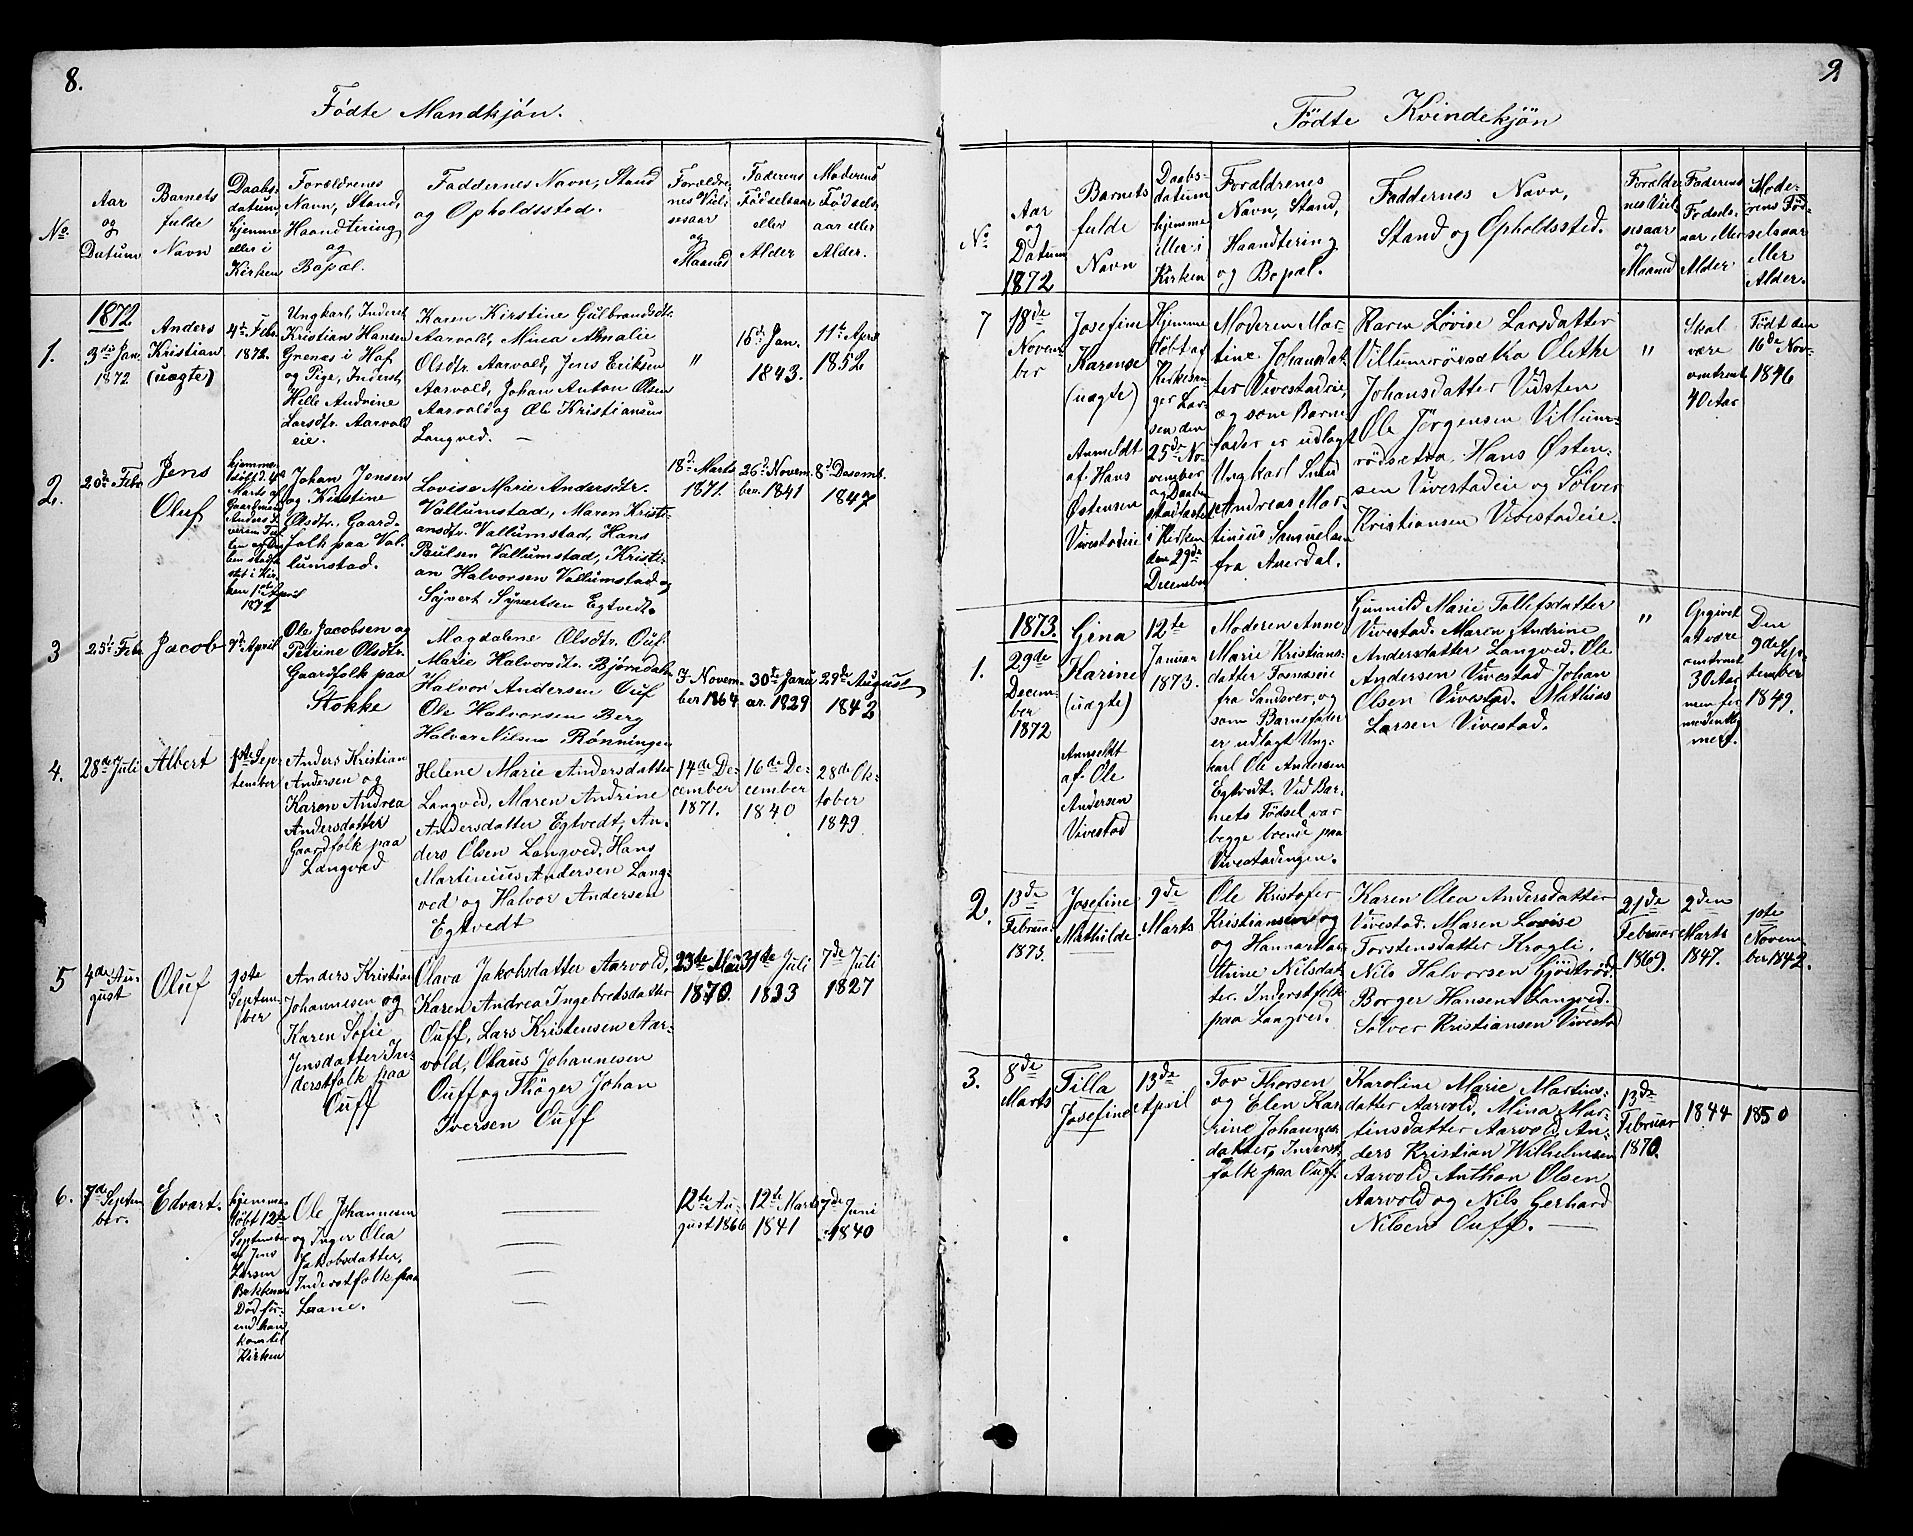 8.
Fødte Mandkjøn.
No.
Aar
og
Datum
Barnets
fulde
Navn
Daabs-
datum
hjemme
eller i
Kirken
Forældrenes
Navn, Stand,
Haandtering
og
Bopæl.
Faddernes Navn, Stand
og Opholdssted.
Forældre-
nes Viel-
sesaar
og
Maaned
Faderens
Fødselsaar
eller
Alder
Moderens
Fødsels-
aar eller
Alder.
1872
1.
3die Jan.
1872
Anders
Kristian
(uægte)
4de Febr.
1872.
Ungkarl, Inderst
Kristian Hansen
Grenes i Haf
og Pige, Inderst,
Helle Andrine
Larsdtr. Aarvold
eie.
Karen Kirstine Gulbrandsdtr.
Aarvold, Mina Amalie
Olsdtr. Aarvold, Jens Eriksen
Aarvold, Johan Anton Olsen
Aarvold og Ole Kristiansen
Langved. —
"
16d. Jan.
1843.
11te Apr.
1852
2.
20de Febr.
Jens
Oluf
hjemme-
døbt d. 4de
Marts af
Gaardmand
Anders
Daaben stadfæ-
stet i Kir-
ken 1ste April
1872
Johan Jensen
og Kirstine
Olsdtr. Gaard-
folk paa Val-
lumstad.
Lovise Marie Andersdtr.
Vallumstad, Maren Kristi-
ansdtr. Vallumstad, Hans
Paulsen Vallumstad, Kristi-
an Halvorsen Vallumstad og
Syvert Syvertsen Egtvedt.
18d. Marts
1871.
26d. Novem-
ber 1841
8d. Desemb.
1847
3
25d. Febr.
Jacob
7d. April
Ole Jacobsen og
Petrine Olsdtr.
Gaardfolk paa
Stokke
Magdalene Olsdtr. Ouf
Marie Halvorsdtr. Bjørndalen
Halvor Andersen Ouf
Ole Halvorsen Berg
Halvor Nilsen Rønningen
7. Novem-
ber 1864
30te Janu-
ar. 1829
29de August
1842
4.
28de Juli
Albert
1ste Sep-
tember
Anders Kristian
Andersen og
Karen Andrea
Andersdatter
Gaardfolk paa
Langved
Helene Marie Andersdatter
Langved, Maren Andrine
Andersdatter Egtvedt, An-
ders Olsen Langved, Hans
Martinius Andersen Lang-
ved og Halvor Andersen
Egtvedt
14de De-
cember
1871.
16de De-
cember
1840
28de Ok-
tober
1849
5
4de Au-
gust
Oluf
1ste
Septem-
ber
Anders Kristian
Johannesen og
Karen Sofie
Jensdatter In-
derstfolk paa
Ouff
Olava Jakobsdatter Aarvold,
Karen Andrea Ingebretsdatter
Ouff, Lars Kristensen Aar-
vold, Olaus Johannesen
Ouff og Thøger Johan
Iversen Ouff
23de Mai
1870.
31te Juli
1833
7de Juli
1827
6.
7de Septem-
ber.
Edvart.
hjemme-
døbt 12te
September
af Jens
Larsen
Bakken
Død før-
end han
kom til
Kirken
Ole Johannesen
og Inger Olea
Jakobsdatter,
Inderstfolk paa
Laane.
12te Au-
gust 1866
12te Marts
1841
7de Juni
1840
9
Fødte Kvindekjøn
No
Aar
og
Datum
1872
Barnets
fulde
Navn
Daabs-
datum
hjemme
eller i
Kirken
Forældrenes
Navn, Stand,
Haandtering
og Bopæl.
Faddernes Navn,
Stand og Opholdssted.
Forældre-
nes Viel-
sesaar
og
Maaned
Faderens
Fødsels-
aar eller
Alder
Mode-
rens Fød-
selsaar
eller
Alder.
7
18de
Novem-
ber
Josefine
Karense
(uægte)
Anmeldt
af Hans
Østensen
Vivestadeie
Hjemme
døbt af
Kirkesan-
ger Lar-
sen den
25de No-
vember
og Daaben
stadfæstet
i Kirken
den 29de
December
Moderen Mar-
tine Johansdat-
ter Vivestadeie,
og som Barne-
fader er udlagt
Ungkarl Smed
Andreas Mar-
tinius Samuelsen
fra Aaserdal.
Karen Lovise Larsdatter
Villumrødsætra Olethe
Johansdatter Vidsten
Ole Jørgensen Villum-
rødsætra, Hans Østen-
sen Vivestadeie og Sølver
Kristiansen Vivestadeie.
"
Skal
være
omtrent
40 Aar
Født den
16de Nov-
1846
1873.
1.
29de
Decem-
ber
1872
Gina
Karine
(uægte)
Anmeldt
af Ole
Andersen
Vivestad
12te
Januar
1873.
Moderen Anne
Marie Kristians-
datter Fosnæseie
fra Sandsver, og
som Barnefader
er udlagt Ung-
karl Ole Andersen
Egtvedt. Ved Bar-
nets Fødsel var
begge boende paa
Vivestadengen.
Gunnild Marie Tollefsdatter
Vivestad. Maren Andrine
Andersdatter Langved. Ole
Andersen Vivestad Johan
Olsen Vivestad. Mathias
Larsen Vivestad.
"
Opgivet
at være
omtrent
30 Aar
Den
9de Sep-
tember
1849.
2.
13de
Februar
1873.
Josefine
Mathilde
9de
Marts
Ole Kristofer
Kristiansen og
og Hanna Mar-
thine Nilsdat-
ter. Inderstfolk
paa Langved.
Karen Olea Andersdatter
Vivestad. Maren Lovise
Torstensdatter Kragli.
Nils Halvorsen Gjöstrød.
Borger Hansen Langved.
Sølver Kristiansen Vivestad
21de
Februar
1869.
2den
Marts
1847.
1ste
Novem-
ber 1842.
3.
8de
Marts
Tilla
Josefine
13de
April
Tov Thorsen
og Elen Ka-
trine Johannes-
datter, Inderst-
folk paa Ouff.
Karoline Marie Martins-
datter Aarvold. Mina Mar-
tinsdatter Aarvold, An-
ders Kristian Wilhelmsen
Aarvold, Anthon Olsen
Aarvold og Nils Gerhard
Nilsen Ouff. —
13de
Februar
1870.
1844
1850